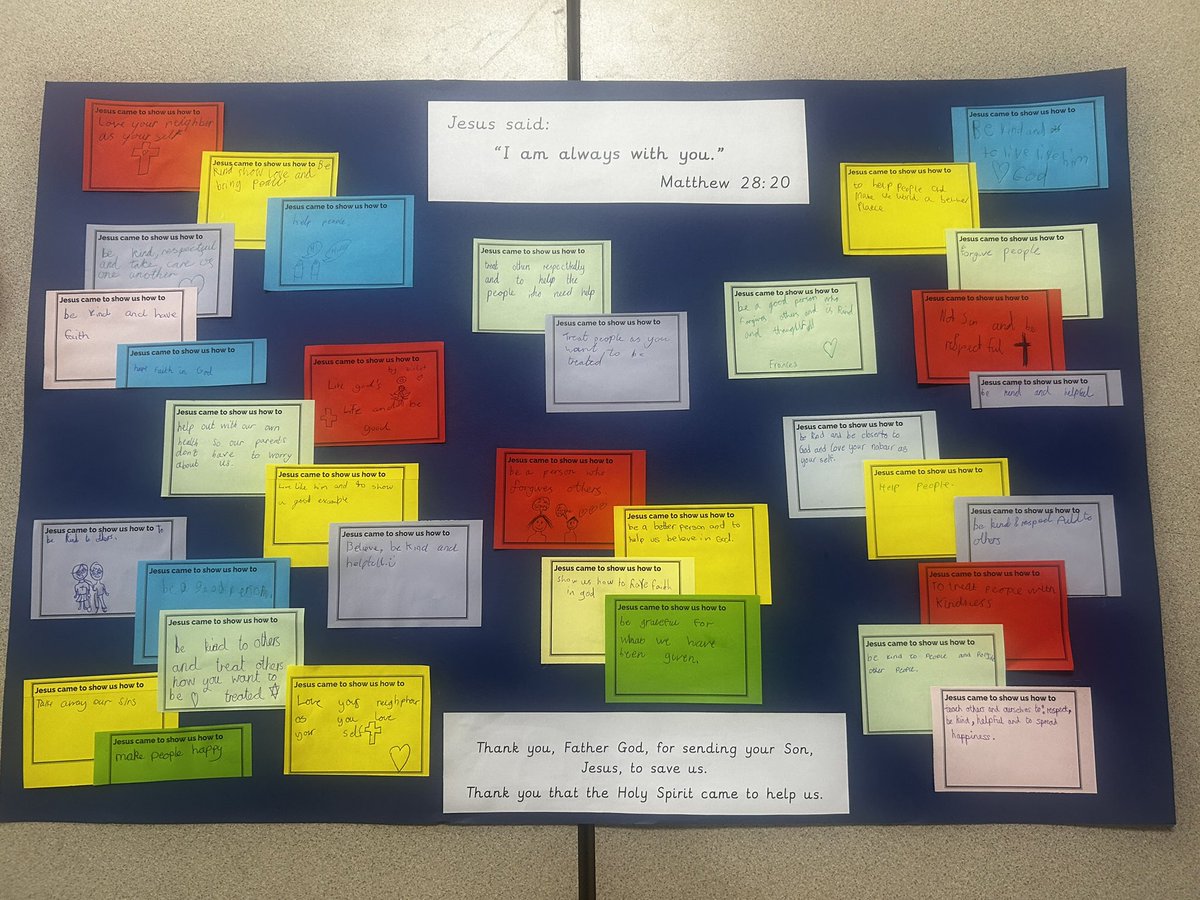 Jesus said:
"I am always with you."
Matthew 28:20
Jesus came to show us how to
Love your neighbor
as your self
Jesus came to show us how to Be
Kind show love and
bring peace
Jesus came to show us how to
help people.
Jesus came to show us how to
be kind, respectful
and take care of
one another
Jesus came to show us how to
be kind and have
faith
Jesus came to show us how to
have faith in God
Jesus came to show us how to
by
Live god's
Life and be
good
Jesus came to show us how to
help out with our own
health so our parents
don't have to worry
about us.
Jesus came to show us how to
Live like him and to show
a good example
Jesus came to show us how to To
be kind to others.
Jesus came to show us how to
be a good person
Jesus came to show us how to
Believe, be kind and
helpful!
Jesus came to show us how to
be kind to others
and treat others
how you want to
be treated
Jesus came to show us how to
Take away our sins
Jesus came to show us how to
make people happy
Jesus came to show us how to
Love your neighbor
as you love
your self
Jesus came to show us how to
treat others respectfully
and to help the
people who need help
Jesus came to show us how to
Treat people as you
want to be
treated
Jesus came to show us how to
be a good person who
forgives others and is kind
and thoughtful
Frances
Jesus came to show us how to
be a person who
forgives others
Jesus came to show us how to
be a better person and to
help us believe in God.
Jesus came to show us how to
show us how to have faith
in god
Jesus came to show us how to
be grateful for
what we have
been given.
Jesus came to show us how to
Be kind and
to live like him
God
Jesus came to show us how to
to help people and
make the world a better
place
Jesus came to show us how to
forgive people
Jesus came to show us how to
Not Sin and be
respectful
Jesus came to show us how to
be kind and helpful
Jesus came to show us how to
be kind and be closer to
God and love your nabour as
your self.
Jesus came to show us how to
Help people.
Jesus came to show us how to
be kind & respectful to
others
Jesus came to show us how to
To treat people with
kindness
Jesus came to show us how to
be kind to people and
other people.
Jesus came to show us how to
teach others and ourselves to respect,
be kind, helpful and to spread
happiness.
Thank you, Father God, for sending your Son,
Jesus, to save us.
Thank you that the Holy Spirit came to help us.